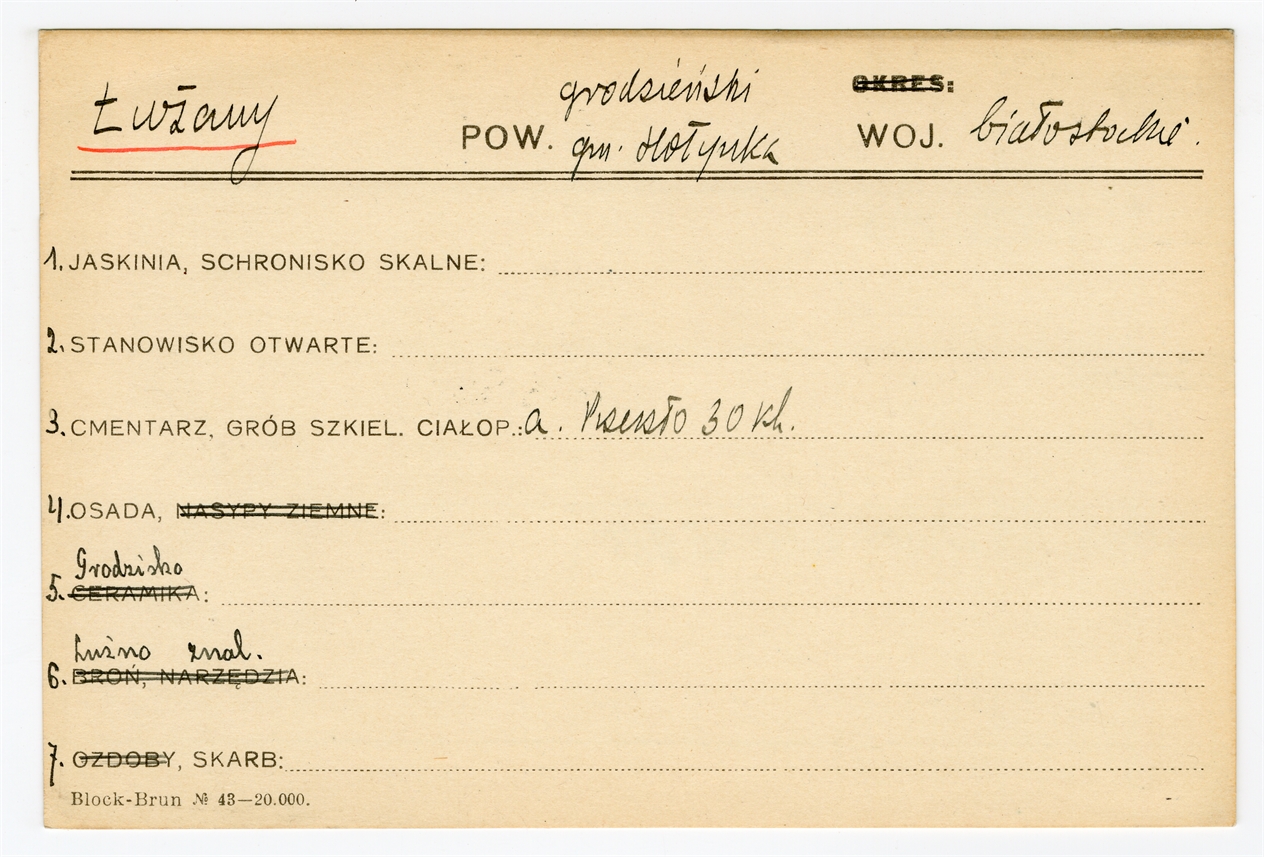 Łwżany
grodzieński
OKRES:
POW. gm. Hołynka WOJ. białostockie.
1. JASKINIA, SCHRONISKO SKALNE:
2. STANOWISKO OTWARTE:
3. CMENTARZ, GRÓB SZKIEL. CIAŁOP.: a. 30 kh.
4. OSADA, NASYPY ZIEMNE:
Grodzisko
5. CERAMIKA:
Luźno znal.
6. BROŃ, NARZĘDZIA:
7. OZDOBY, SKARB:
Block-Brun № 43—20.000.